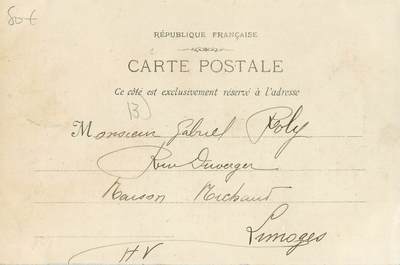 80 €
RÉPUBLIQUE FRANÇAISE
CARTE POSTALE
Ce côté est exclusivement réservé à l'adresse
B)
Monsieur Gabriel Roly
Rue Duverger
Maison Michaud
Limoges
HV